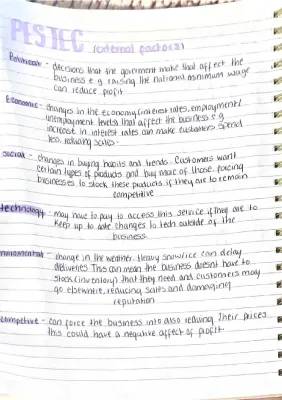 PESTEC (external factors)
Political - decisions that the government make that affect the
business e.g raising the national minimum wage
can reduce profit
Economic - changes in the economy (interest rates, employment/
unemployment levels) that affect the business e.g
increase in interest rates can make customers spend
less, reducing sales.
social - changes in buying habits and trends. Customers want
certain types of products and buy more of those, forcing
businesses to stock these products if they are to remain
competitive
technology - may have to pay to access this service if they are to
keep up to date changes to tech outside of the
business
change in the weather. Heavy snow/ice can delay
deliveries. This can mean the business doesnt have to
stock (inventory) that they need and customers may
go elsewhere, reducing sales and damaging
reputation
competitive - can force the business into also reducing their prices
this could have a negative affect of profit